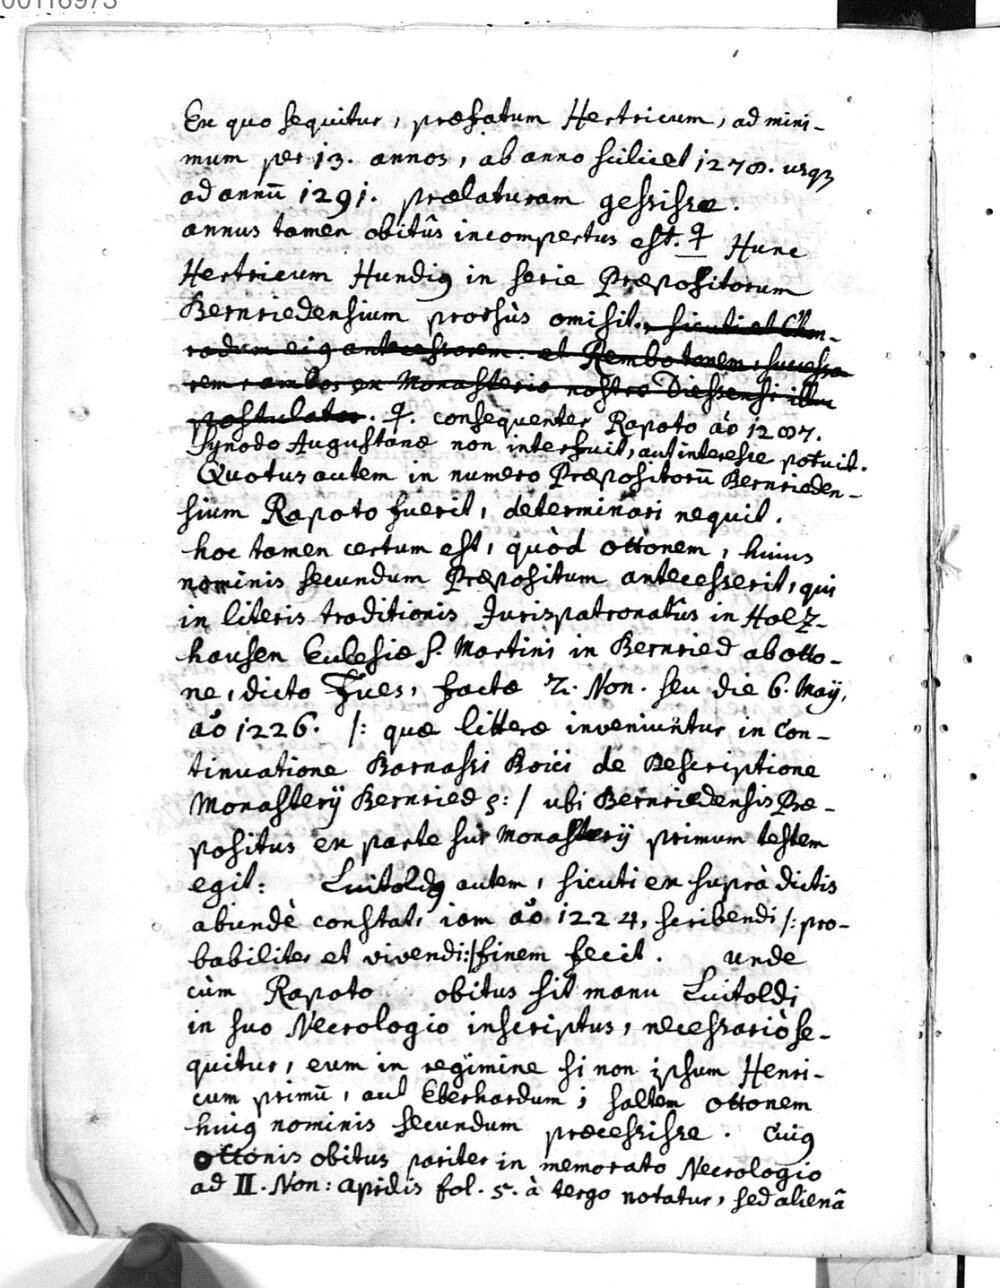 00116973
Ex quo sequitur, præfatum Hertricum, ad mini-
mum per 13. annos, ab anno scilicet 1278. usq3
ad annū 1291. prælaturam gessisse.
annus tamen obitûs incompertus est. Hunc
Hertricum Hundi9 in serie Præpositorum
Bernriedensium prorsùs omisit. sicuti et Chon-
radum ei9 antecessorem: et Rembotonem, successo
rem, ambos ex Monasterio nostro Diessensi illuc
postulatos. consequenter Rapoto aõ 1287.
Synodo Augustanæ non interfuit, aut interesse potuit.
Quotus autem in numero Præpositorū Bernrieden-
sium Rapoto fuerit, determinari nequit.
hoc tamen certum est, quòd ottonem, huius
nominis secundum Præpositum antecesserit, qui
in literis traditionis Jurispatronatûs in Holz-
hausen Ecclesiæ S. Martini in Bernried ab otto-
ne, dicto Fues, factæ 2. Non. seu die 6. Maÿ,
aõ 1226. /: quæ litteræ inveniuntur in Con-
tinuatione Parnassi Boici de Descriptione
Monasterÿ Bernried :/ ubi Bernriedensis Præ-
positus ex parte sui Monasterÿ primum testem
egit: Luitold9 autem, sicuti ex suprà dictis
abundè constat, iam aõ 1224, scribendi /: pro-
babiliter et vivendi:/ finem fecit. unde
cùm Rapoto obitus sit manu Luitoldi
in suo Necrologio inscriptus, necessariò se-
quitur, eum in regimine si non ipsum Henri-
cum primū, aut Eberhardum; saltem ottonem
hui9 nominis secundum præcessisse. Cui9
ottonis obitus pariter in memorato Necrologio
ad II. Non: aprilis fol. 5. à tergo notatur, sed alienâ